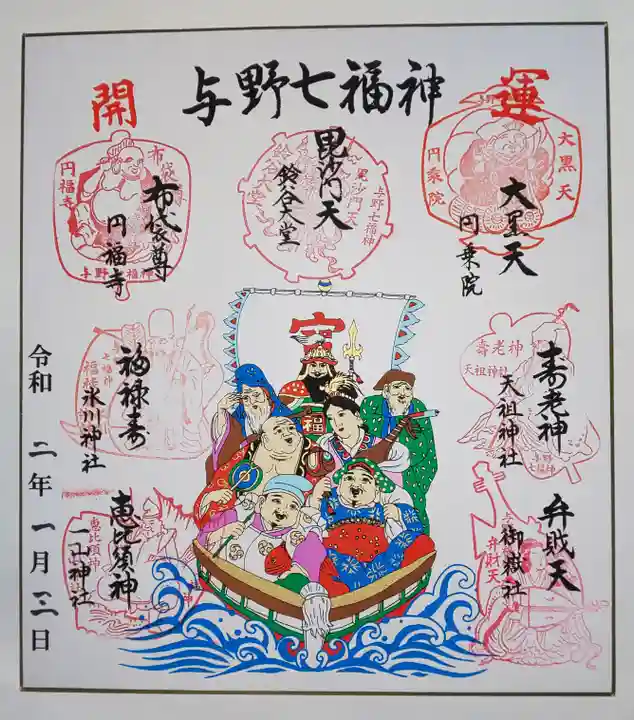 与野七福神
開
運
大黒天
円乗院
大黒天
円乗院
毘沙門天
鈴谷大堂
毘沙門天
与野七福神
布袋尊
円福寺
布袋尊
円福寺
与野七福神
寿老神
天祖神社
寿老神
天祖神社
与野七福神
福禄寿
氷川神社
七福神
弁財天
御嶽社
弁財天
恵比須神
一山神社
恵比須神
宝
福
令和二年一月三日